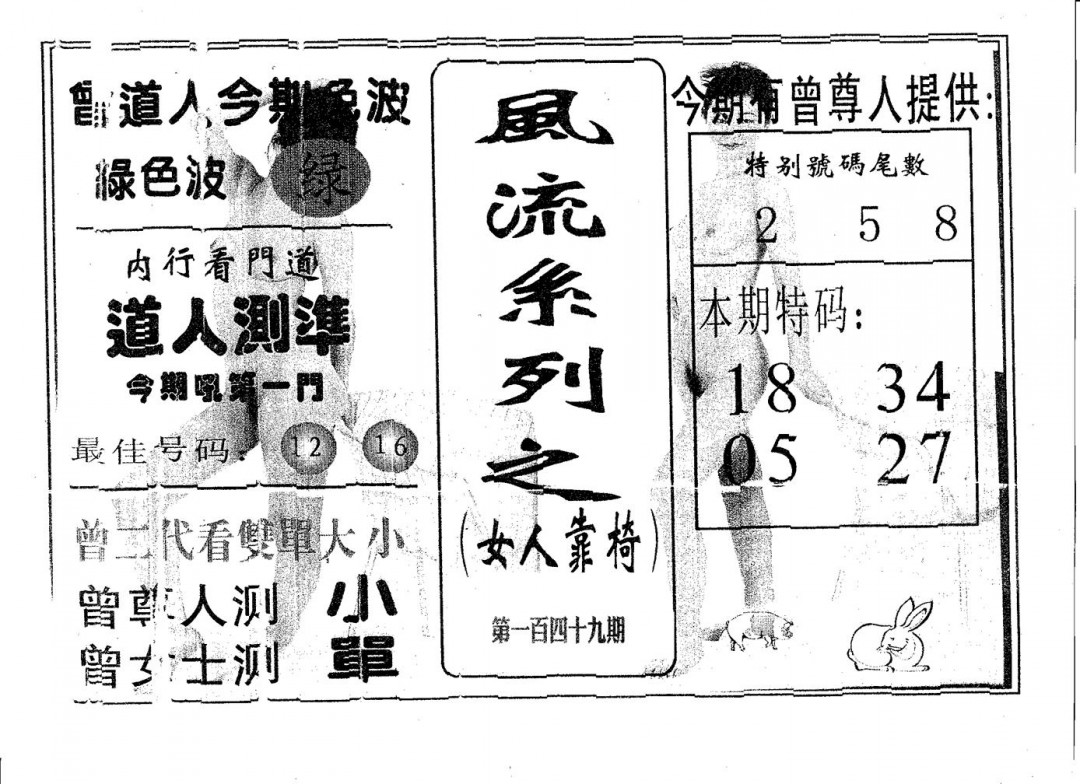 曾道人今期色波
綠色波 绿
内行看門道
道人測準
今期吼第一門
最佳号码: 12 16
曾二代看雙單大小
曾尊人测 小
曾女士测 單
風流系列之
(女人靠椅)
第一百四十九期
今期有曾尊人提供:
特别號碼尾數
2 5 8
本期特码:
18 34
05 27